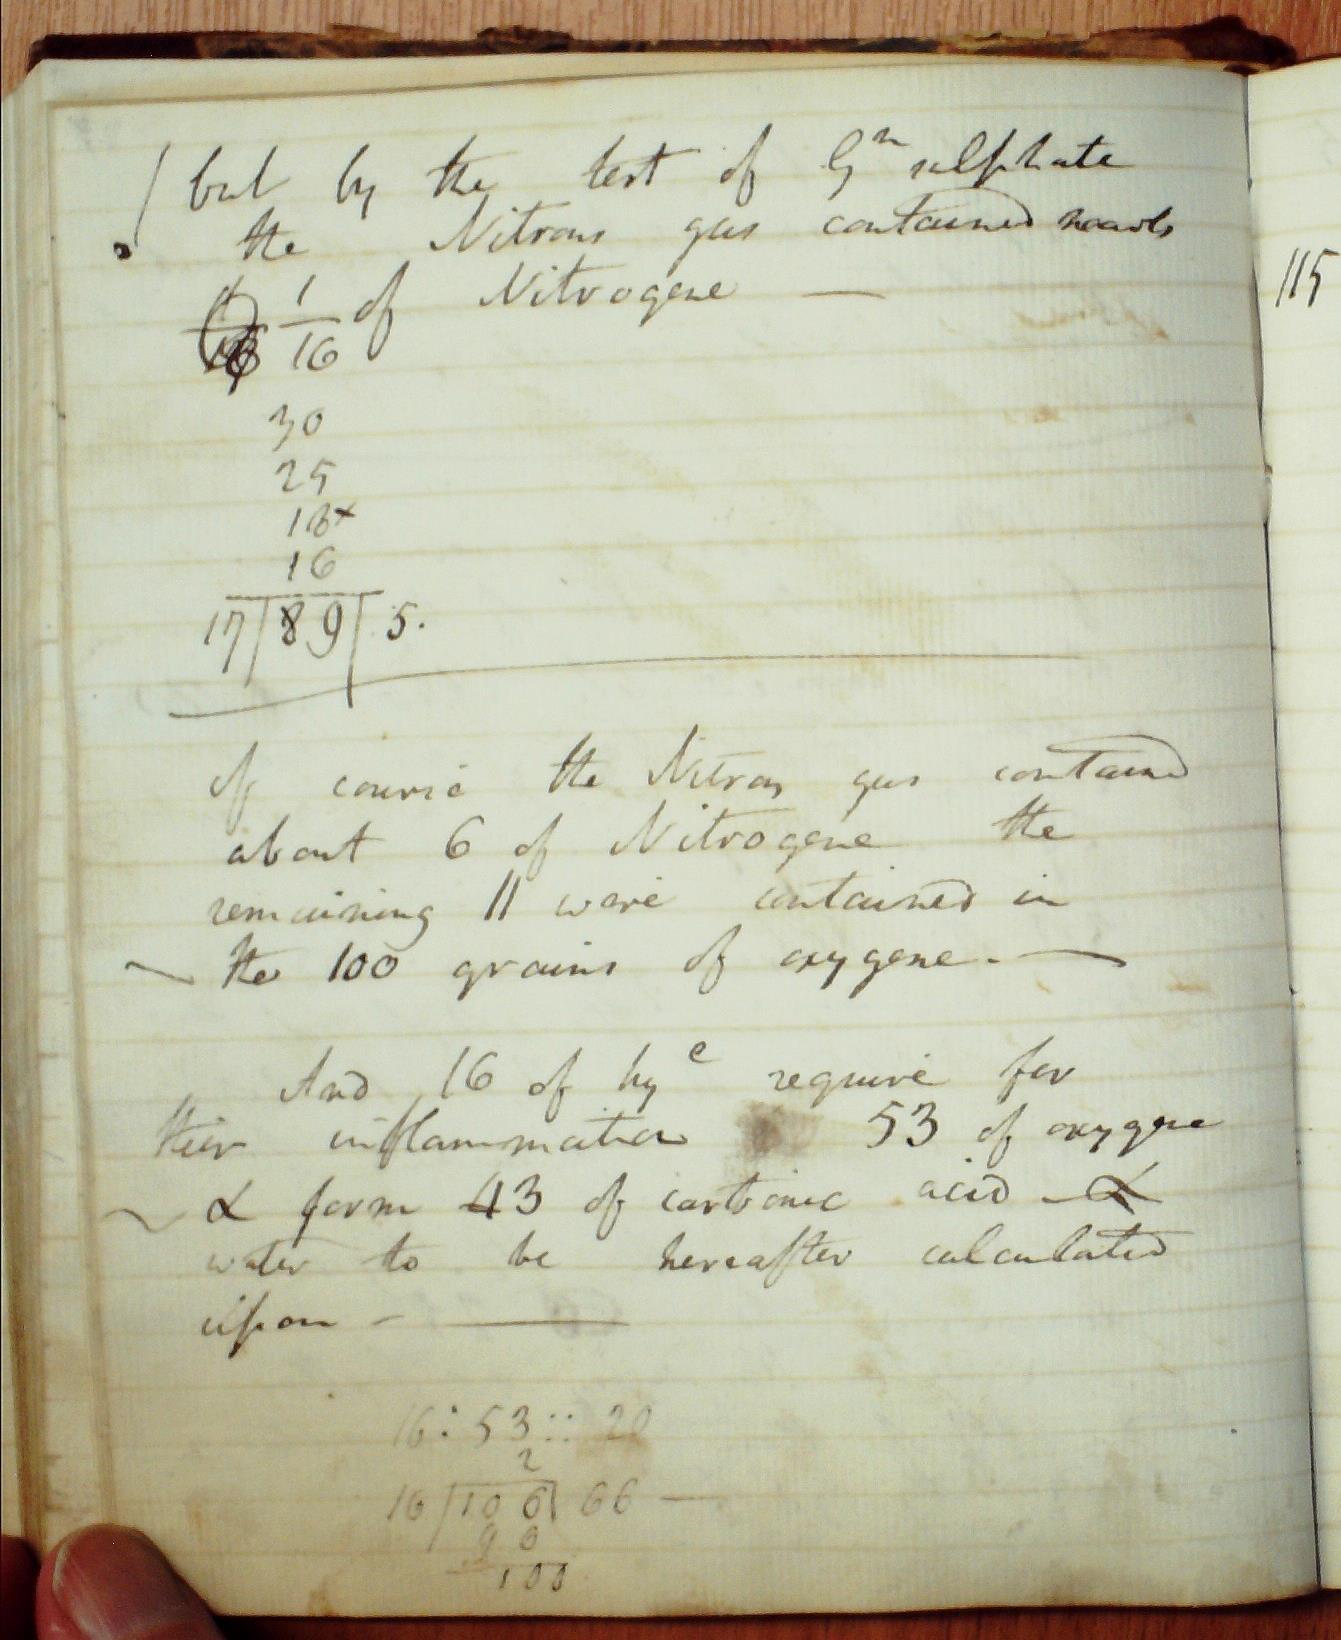 but by the test of Gn sulphate
the Nitrous gas contained nearly
1 of Nitrogene —
16
30
25
18x
16
17|89|5.
Of course the Nitrous gas contained
about 6 of Nitrogene the
remaining 11 were contained in
the 100 grains of oxygene. —
And 16 of hye require for
their inflammation 53 of oxygene
& form 43 of carbonic acid - &
water to be hereafter calculated
upon - —
16 : 53 :: 20
2
16|106|66 —
90
100
115